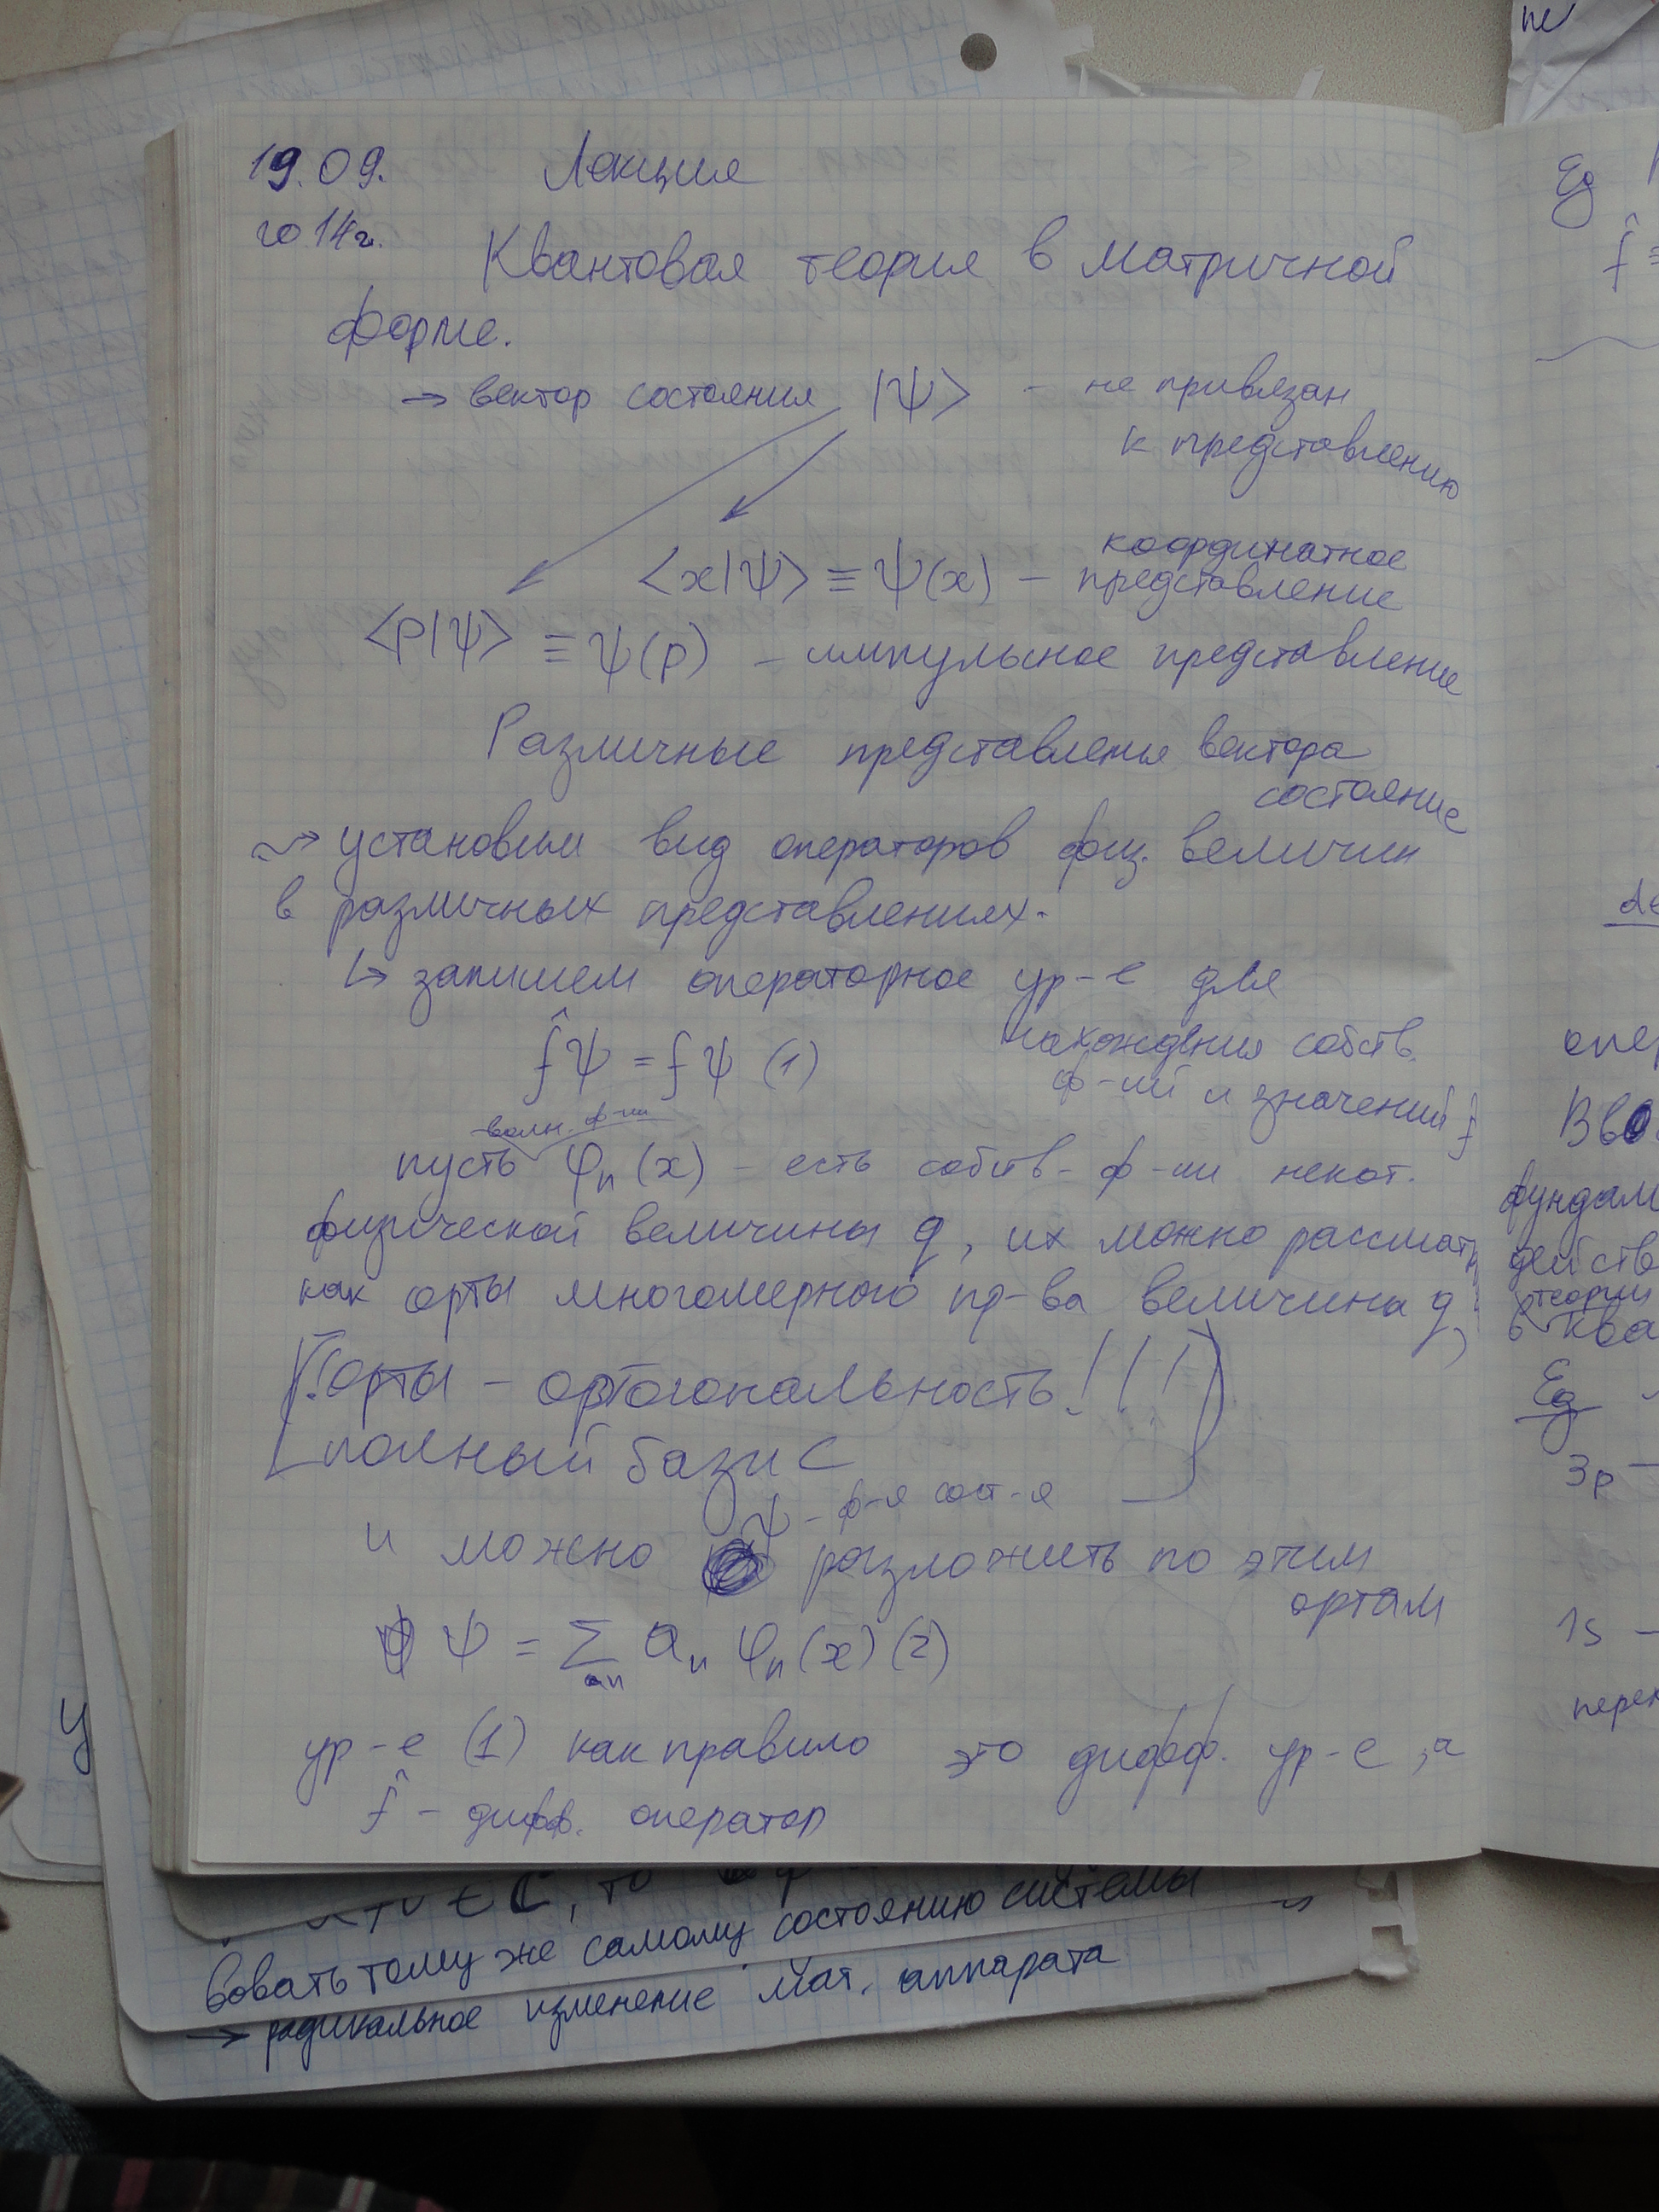 19.09. Лекция
2014г.
Квантовая теория в матричной
форме.
→ вектор состояния |ψ> - не привязан
к представлению
<x|ψ> ≡ ψ(x) - координатное
представление
<p|ψ> ≡ ψ(p) - импульсное представление
Различные представления вектора
состояние
установим вид операторов физ. величин
в различных представлениях.
↳ запишем операторное ур-е для
f̂ψ = fψ (1) нахождения собств.
ф-ий и значений f̂
волн. ф-ии
пусть φₙ(x) - есть собств- ф-ии некот.
физической величины q, их можно рассматр
как орты многомерного пр-ва величины q,
(! орты - ортогональность!!!)
полный базис
ψ - ф-я сост-я
и можно разложить по этим
ортам
ψ = ∑ₙ aₙ φₙ(x) (2)
ур-е (1) как правило это дифф. ур-е, а
f̂ - дифф. оператор
вовать тому же самому состоянию системы
→ радикальное изменение мат. аппарата
не
Eg
f̂
опер
фундам
действ
теории
в ква
Eg
3p -
1s -
перех
у